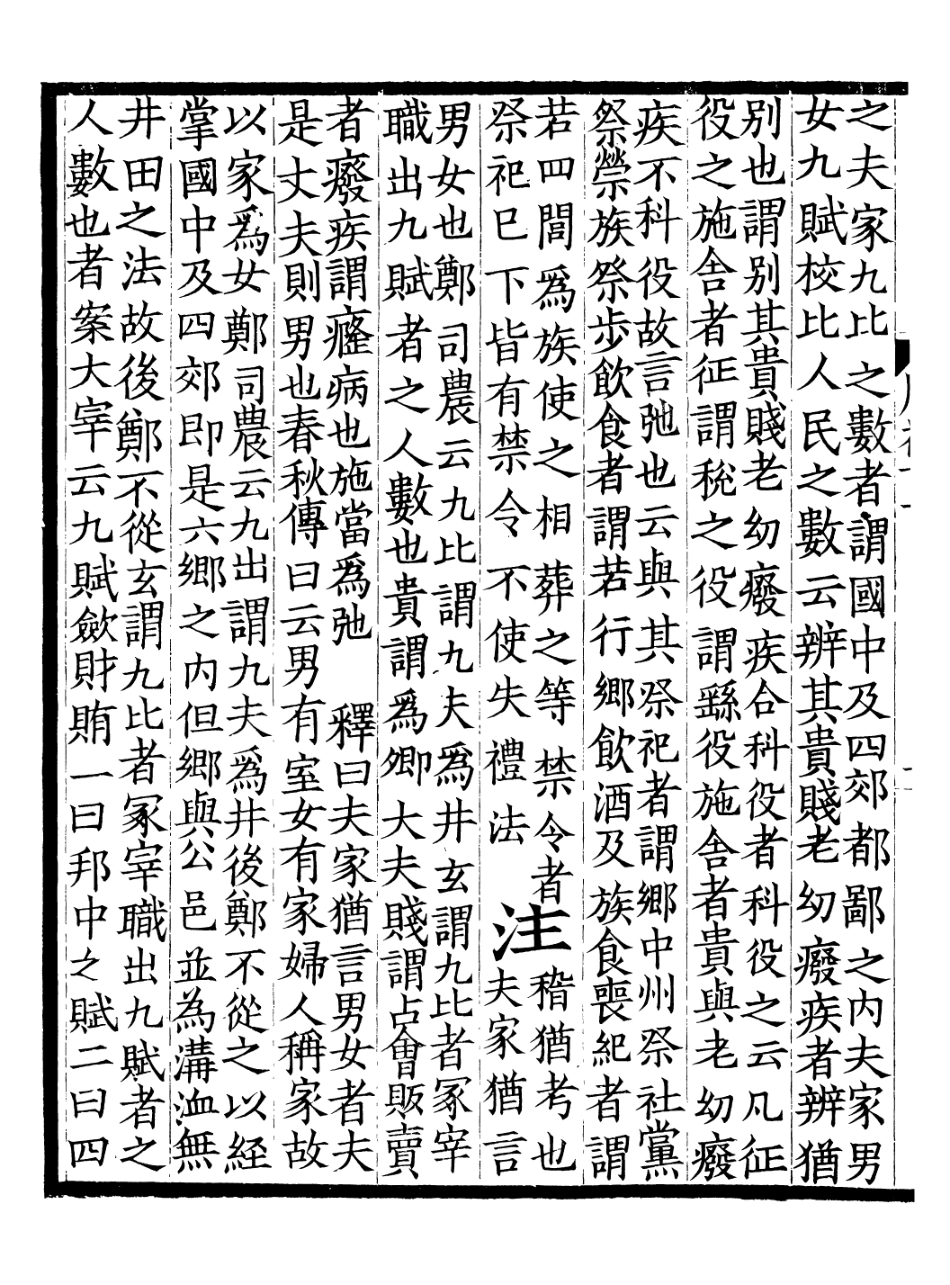 之夫家九比之數者謂國中及四郊都鄙之内夫家男
女九賦校比人民之數云辨其貴賤老幼癈疾者辨猶
别也謂别其貴賤老幼癈疾合科役者科役之云凡征
役之施舍者征謂稅之役謂繇役施舍者貴與老幼癈
疾不科役故言弛也云與其祭祀者謂鄉中州祭社黨
祭禜族祭步飲食者謂若行鄉飲酒及族食喪紀者謂
若四閭爲族使之相葬之等禁令者
祭祀巳下皆有禁令不使失禮法
注
稽猶考也
夫家猶言
男女也鄭司農云九比謂九夫爲井玄謂九比者冢宰
職出九賦者之人數也貴謂爲卿大夫賤謂占會販賣
者癈疾謂癃病也施當爲弛 釋曰夫家猶言男女者夫
是丈夫則男也春秋傳曰云男有室女有家婦人稱家故
以家爲女鄭司農云九出謂九夫爲井後鄭不從之以経
掌國中及四郊即是六鄉之内但鄉與公邑並為溝洫無
井田之法故後鄭不從玄謂九比者冢宰職出九賦者之
人數也者案大宰云九賦斂財賄一曰邦中之賦二曰四